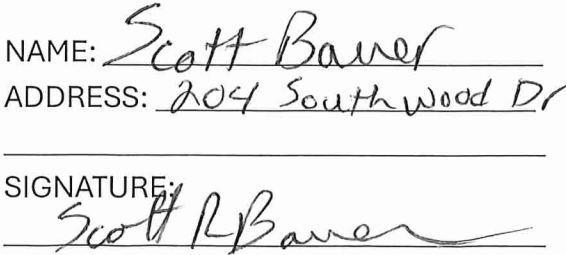 NAME: Scott Bauer
ADDRESS: 204 Southwood Dr
SIGNATURE:
Scott R Bauer